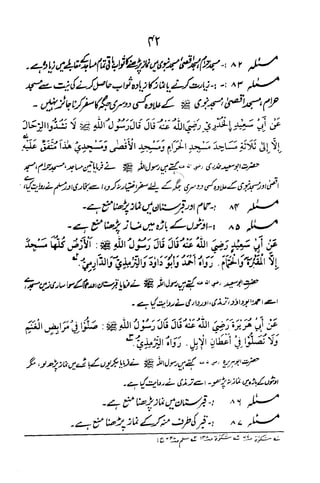 ۴۲
مسئلہ ۸۲ :- مسجد حرام، مسجد اقصیٰ، مسجد نبوی میں نماز پڑھنے کا ثواب باقی تمام مساجد کے مقابلے میں زیادہ ہے۔
مسئلہ ۸۳ :- زیارت کرنے یا نماز کا زیادہ ثواب حاصل کرنے کی نیت سے مسجد
حرام، مسجد اقصیٰ، مسجد نبوی ﷺ کے علاوہ کسی دوسری جگہ کا سفر کرنا جائز نہیں۔
عَنْ أَبِيْ سَعِيْدٍ الْخُدْرِيِّ رَضِيَ اللهُ عَنْهُ قَالَ قَالَ رَسُوْلُ اللهِ ﷺ لَا تَشُدُّوا الرِّحَالَ
إِلَّا إِلَى ثَلَاثَةِ مَسَاجِدَ مَسْجِدِ الْحَرَامِ وَمَسْجِدِ الْأَقْصَى وَمَسْجِدِيْ هٰذَا مُتَّفَقٌ عَلَيْهِ
حضرت ابوسعید خدری رضی اللہ عنہ کہتے ہیں رسول اللہ ﷺ نے فرمایا تین مساجد، مسجد حرام، مسجد
اقصیٰ اور مسجد نبوی کے علاوہ کسی دوسری جگہ کے لیے سفر اختیار نہ کرو۔ اسے بخاری اور مسلم نے روایت کیا ہے۔
مسئلہ ۸۴ :- حمام اور قبرستان میں نماز پڑھنا منع ہے۔
مسئلہ ۸۵ :- اونٹوں کے باڑہ میں نماز پڑھنا منع ہے۔
عَنْ أَبِيْ سَعِيْدٍ رَضِيَ اللهُ عَنْهُ قَالَ قَالَ رَسُوْلُ اللهِ ﷺ : الْأَرْضُ كُلُّهَا مَسْجِدٌ
إِلَّا الْمَقْبُرَةَ وَالْحَمَّامَ . رَوَاهُ أَحْمَدُ وَأَبُوْ دَاوُدَ وَالتِّرْمِذِيُّ وَالدَّارِمِيُّ
حضرت ابوسعید رضی اللہ عنہ کہتے ہیں رسول اللہ ﷺ نے فرمایا قبرستان اور حمام کے سوا ساری زمین مسجد ہے
اسے احمد، ابوداؤد، ترمذی، اور دارمی نے روایت کیا ہے۔
عَنْ أَبِيْ هُرَيْرَةَ رَضِيَ اللهُ عَنْهُ قَالَ قَالَ رَسُوْلُ اللهِ ﷺ : صَلُّوْا فِيْ مَرَابِضِ الْغَنَمِ
وَلَا تُصَلُّوْا فِيْ أَعْطَانِ الْإِبِلِ . رَوَاهُ التِّرْمِذِيُّ
حضرت ابوہریرہ رضی اللہ عنہ کہتے ہیں رسول اللہ ﷺ نے فرمایا بکریوں کے باڑے میں نماز پڑھ لو، مگر
اونٹوں کے باڑہ میں نماز نہ پڑھو۔ اسے ترمذی نے روایت کیا ہے۔
مسئلہ ۸۶ :- قبرستان میں نماز پڑھنا منع ہے۔
مسئلہ ۸۷ :- قبر کی طرف منہ کرکے نماز پڑھنا منع ہے۔